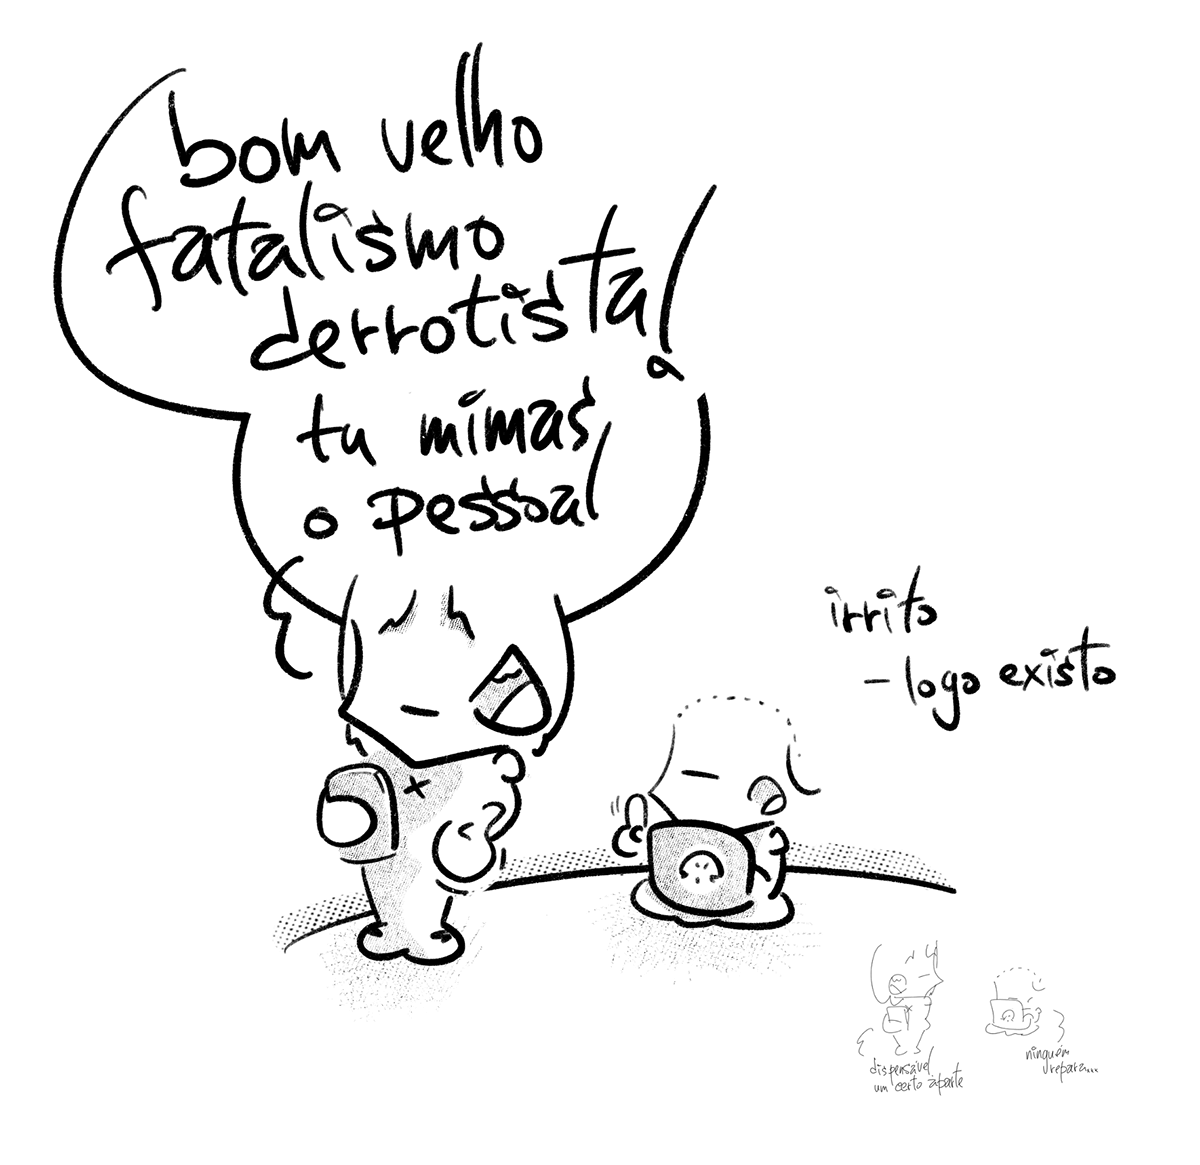 bom velho
fatalismo
derrotista!
tu mimas
o pessoal
irrito
- logo existo
dispensável
um certo àparte
ninguém
repara...